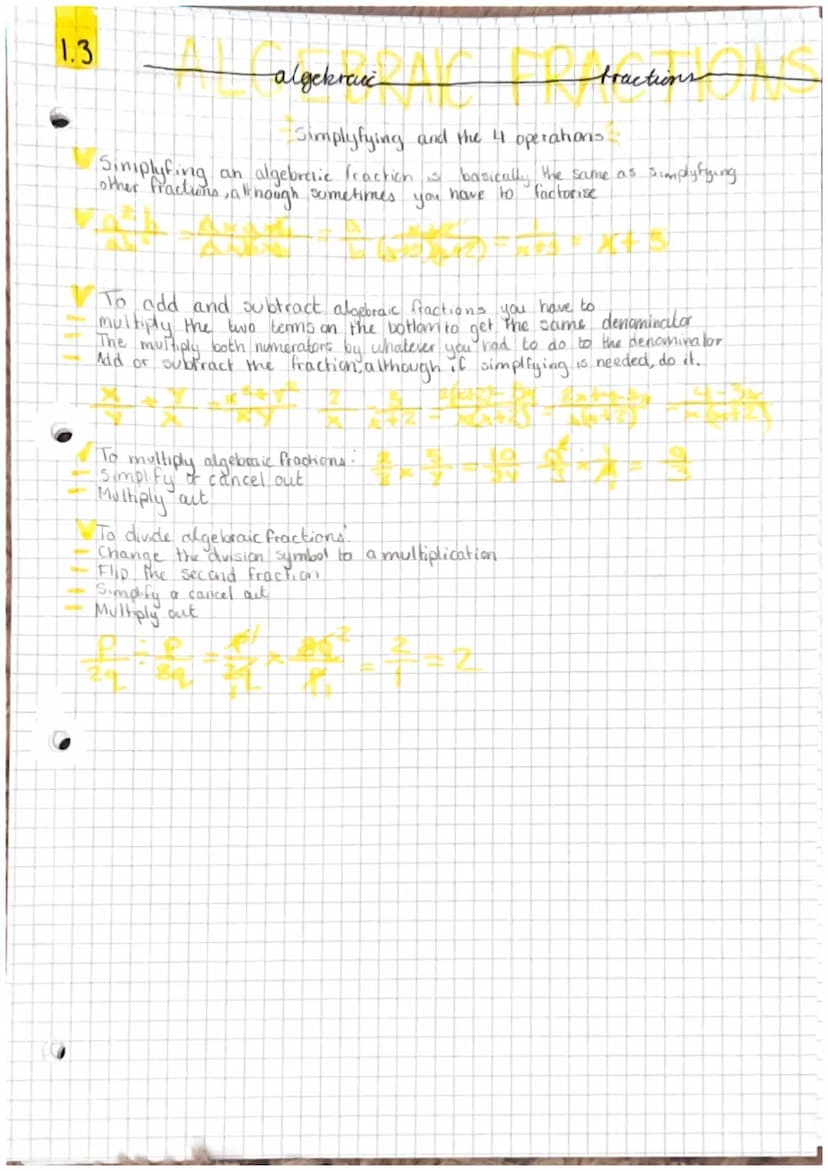 1.3
ALGEBRAIC FRACTIONS
algebraic fractions
Simplyfying and the 4 operations
Simplyfing an algebraic fraction is basically the same as simplyfying
other fractions, although sometimes you have to factorise
= x + 3
To add and subtract algebraic fractions you have to
- multiply the two terms on the bottom to get the same denominator
- The multiply both numerators by whatever you had to do to the denominator
- Add or subtract the fraction, although if simplfying is needed, do it.
x/y + y/x = x²+y²/xy
To multiply algebraic fractions:
- Simplify or cancel out
- Multiply out
To divide algebraic fractions:
- Change the division symbol to a multiplication
- Flip the second fraction
- Simplify or cancel out
- Multiply out
p/2q ÷ p/8q = p/2q × 8q/p = 2/1 = 2